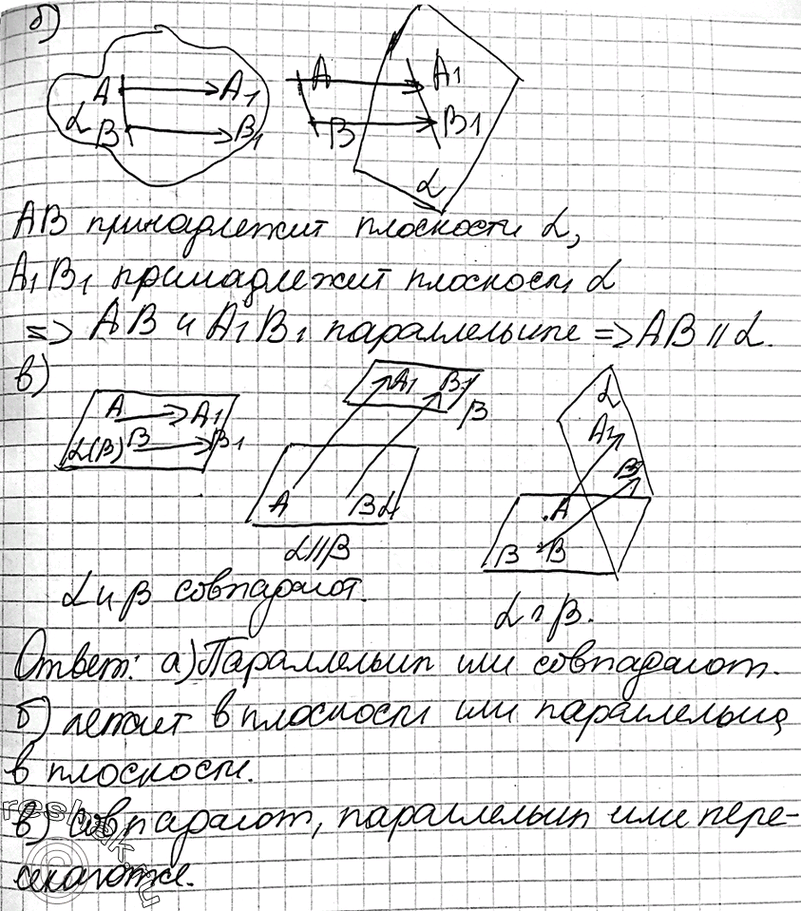 б)
A A1 A A1
α B B1 B B1
α
AB принадлежит плоскости α,
A1B1 принадлежит плоскости α
=> AB и A1B1 параллельные => AB || α.
в)
A A1
α(β) B B1
A1 B1
β
A B α
α||β
α
A1
B1
A
β B
α и β совпадают.
α ∩ β.
Ответ: а) Параллельны или совпадают.
б) лежит в плоскости или параллельна
в плоскости.
в) совпадают, параллельны или пере-
секаются.
reshak.ru
©